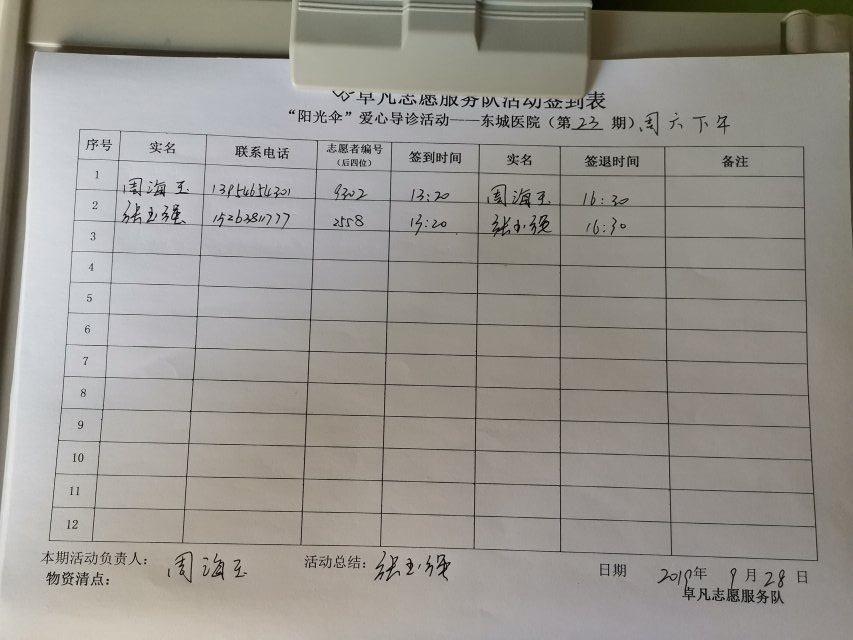 卓凡志愿服务队活动签到表
“阳光伞”爱心导诊活动——东城医院（第23期）周六下午
序号 实名 联系电话 志愿者编号（后四位） 签到时间 实名 签退时间 备注
1 周海玉 13954654301 9302 13:20 周海玉 16:30
2 张玉强 15263811777 2558 13:20 张玉强 16:30
3
4
5
6
7
8
9
10
11
12
本期活动负责人：周海玉 活动总结：张玉强 日期 2019年9月28日
物资清点： 卓凡志愿服务队